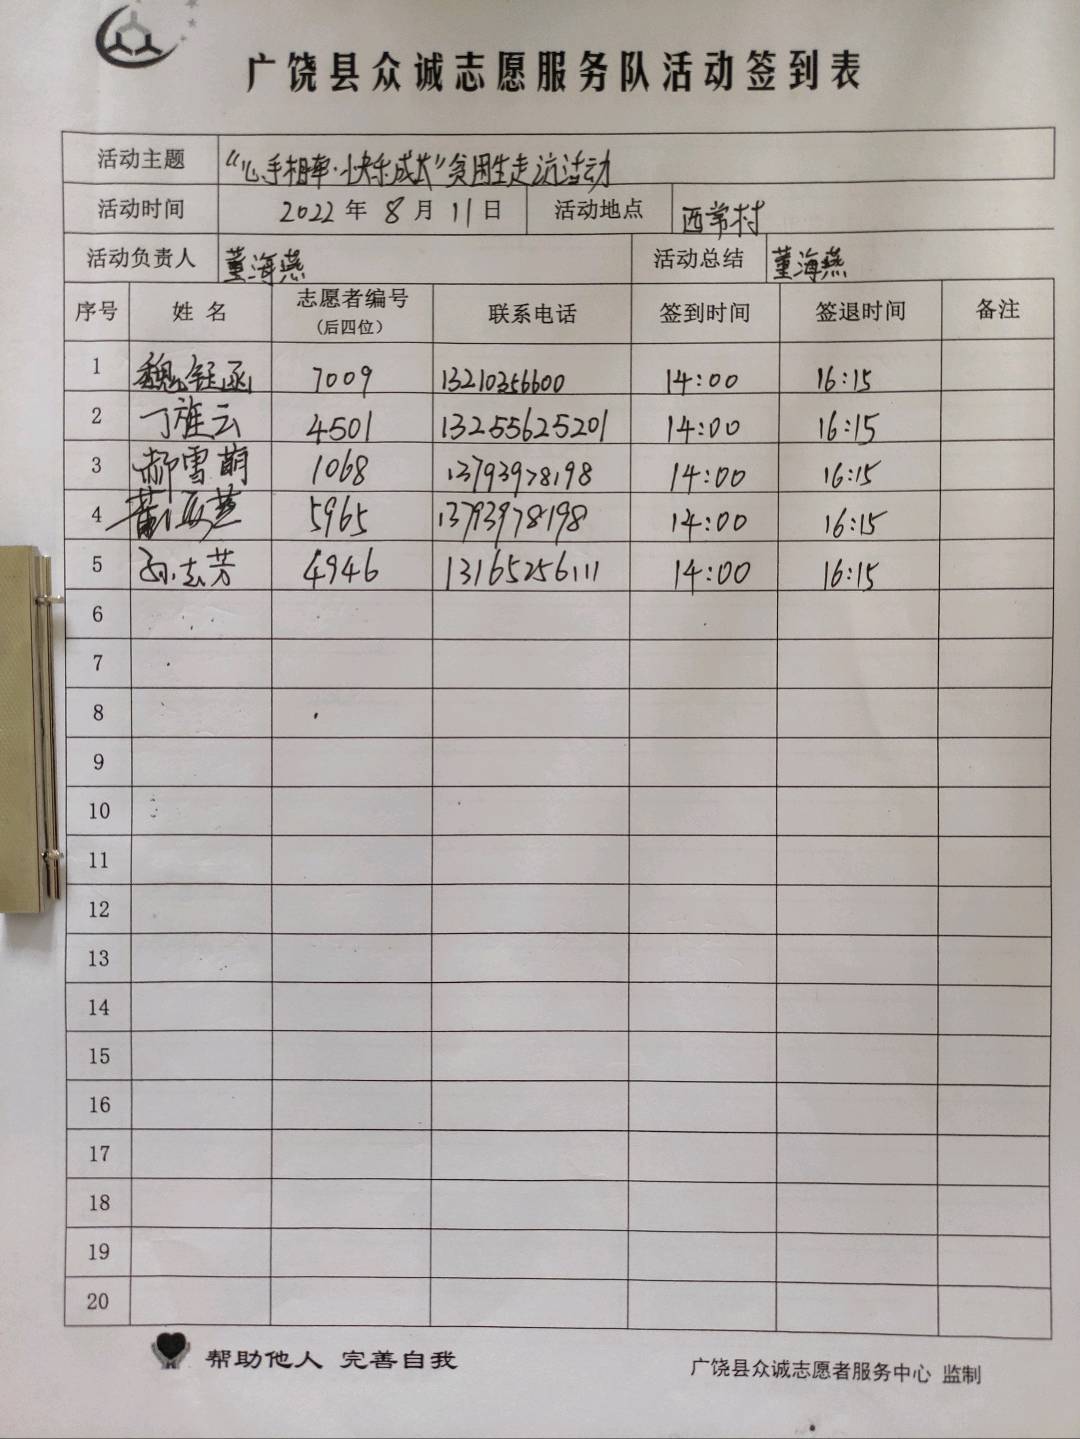 广饶县众诚志愿服务队活动签到表
活动主题 “心手相牵·快乐成长”贫困生走访活动
活动时间 2022年8月11日 活动地点 西常村
活动负责人 董海燕 活动总结 董海燕
序号 姓名 志愿者编号 (后四位) 联系电话 签到时间 签退时间 备注
1 魏钰函 7009 13210356600 14:00 16:15
2 丁雅云 4501 13255625201 14:00 16:15
3 郝雪萌 1068 13793978198 14:00 16:15
4 5965 13793978198 14:00 16:15
5 孙志芳 4946 13165256111 14:00 16:15
6
7
8
9
10
11
12
13
14
15
16
17
18
19
20
帮助他人 完善自我
广饶县众诚志愿者服务中心 监制